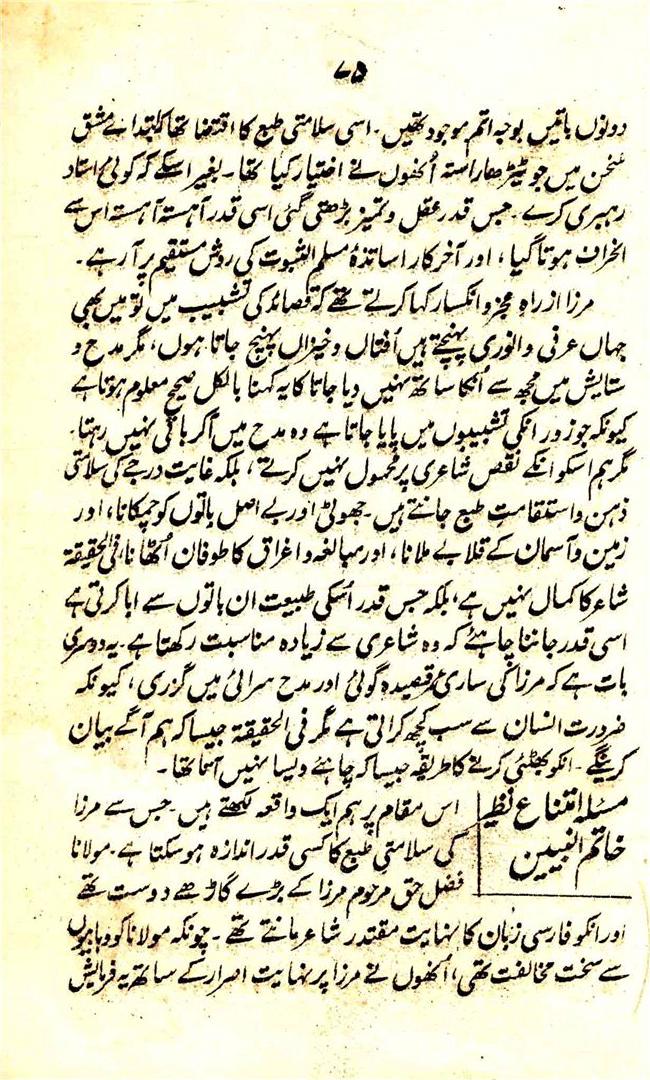 ۷۵
دونوں باتیں بوجہ اتم موجود تھیں۔ اسی سلامتی طبع کا اقتضا تھا کہ ابتداے مشق
سخن میں جو ٹیڑھا راستہ اُنھوں نے اختیار کیا تھا۔ بغیر اسکے کہ کوئی اُستاد
رہبری کرے۔ جس قدر عقل و تمیز بڑھتی گئی اسی قدر آہستہ آہستہ اس سے
انحراف ہوتا گیا، اور آخر کار اساتذۂ مسلم الثبوت کی روش مستقیم پر آ رہے۔
مرزا از راہِ عجز و انکسار کہا کرتے تھے کہ قصائد کی تشبیب میں تو میں بھی
جہاں عرفی و انوری پہنچتے ہیں اُفتاں و خیزاں پہنچ جاتا ہوں، مگر مدح و
ستایش میں مجھ سے اُنکا ساتھ نہیں دیا جاتا کا یہ کہنا بالکل صحیح معلوم ہوتا ہے
کیونکہ جو زور انکی تشبیبوں میں پایا جاتا ہے وہ مدح میں آکر باقی نہیں رہتا۔
مگر ہم اسکو انکے نقص شاعری پر محمول نہیں کرتے، بلکہ غایت درجے کی سلامتی
ذہن و استقامتِ طبع جانتے ہیں۔ جھوٹی اور بے اصل باتوں کو چمکانا، اور
زمین و آسمان کے قلابے ملانا، اور مبالغہ و اغراق کا طوفان اُٹھانا، فی الحقیقۃ
شاعر کا کمال نہیں ہے، بلکہ جس قدر اُسکی طبیعت ان باتوں سے ابا کرتی ہے
اسی قدر جاننا چاہئے کہ وہ شاعری سے زیادہ مناسبت رکھتا ہے۔ یہ دوسری
بات ہے کہ مرزا کی ساری عمر قصیدہ گوئی اور مدح سرائی میں گزری، کیونکہ
ضرورت انسان سے سب کچھ کراتی ہے مگر فی الحقیقۃ جیسا کہ ہم آگے بیان
کرینگے۔ انکو بھٹئی کرنے کا طریقہ جیسا کہ چاہئے ویسا نہیں آتا تھا۔
مسئلہ امتناع نظیر
خاتم النبیین
اس مقام پر ہم ایک واقعہ لکھتے ہیں۔ جس سے مرزا
کی سلامتی طبع کا کسی قدر اندازہ ہو سکتا ہے۔ مولانا
فضل حق مرحوم مرزا کے بڑے گاڑھے دوست تھے
اور انکو فارسی زبان کا نہایت مقتدر شاعر مانتے تھے۔ چونکہ مولانا کو وہابیوں
سے سخت مخالفت تھی، اُنھوں نے مرزا پر نہایت اصرار کے ساتھ یہ فرمایش